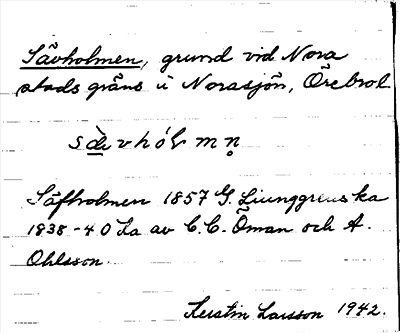 Sävholmen, grund vid Nora
stads gräns i Norasjön, Örebro l
sä̀vhól mn̥
Säfholmen 1857 G. Ljunggrens ka
1838-40 La av C.C. Öman och A.
Ohlsson
Kerstin Larsson 1942.